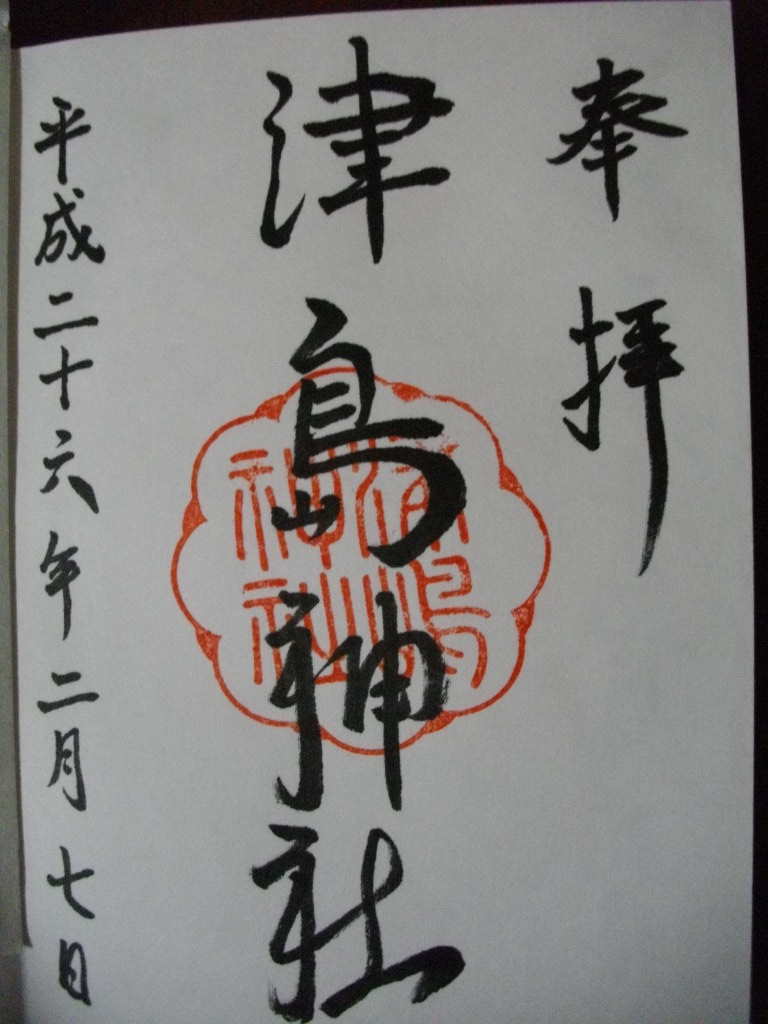 奉拝
津島神社
津島神社
平成二十六年二月七日